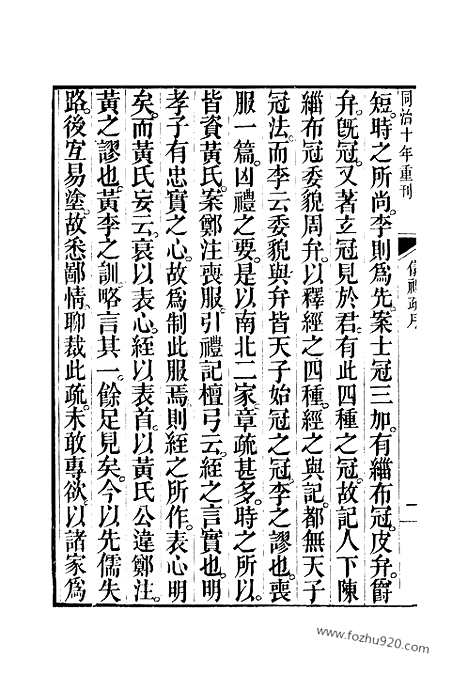 同治十年重刊
儀禮疏序
一
短。時之所尚。李則爲先。案士冠三加。有緇布冠。皮弁。爵
弁。旣冠。又著玄冠見於君。有此四種之冠。故記人下陳
緇布冠委貌周弁。以釋經之四種。經之與記。都無天子
冠法。而李云委貌與弁皆天子始冠之冠。李之謬也。喪
服一篇。凶禮之要。是以南北二家章疏甚多。時之所以。
皆資黃氏。案鄭注喪服。引禮記檀弓云。絰之言實也。明
孝子有忠實之心。故爲制此服焉。則絰之所作。表心明
矣。而黃氏妄云。衰以表心。絰以表首。以黃氏公違鄭注。
黃之謬也。黃李之訓。略言其一。餘足見矣。今以先儒失
路。後宐易塗。故悉鄙情。聊裁此疏。未敢專欲。以諸家爲
www.fozhu920.com